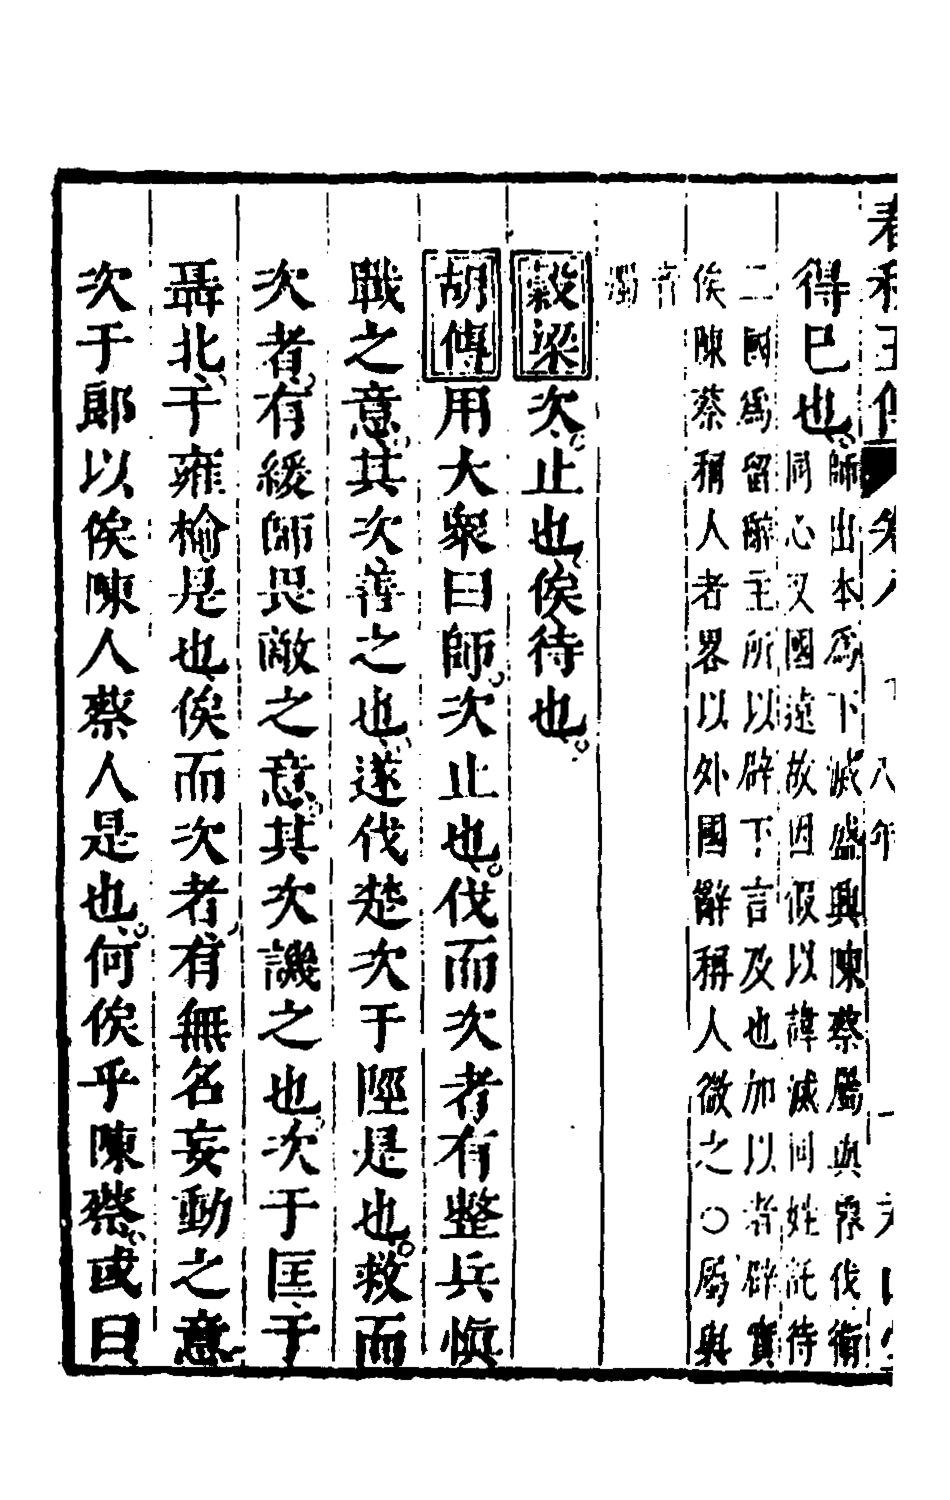 得已也師出本爲下滅盛興陳蔡屬與衛伐衛
同心又國遠故因假以諱滅同姓託待
二國爲留辭主所以辟下言及也加以者辟實
俟陳蔡稱人者畧以外國辭稱人微之○屬與
音
燭
穀梁次止也俟待也
胡傳用大衆曰師次止也伐而次者有整兵愼
戰之意其次善之也遂伐楚次于陘是也救而
次者有緩師畏敵之意其次譏之也次于匡于
聶北于雍榆是也俟而次者有無名妄動之意
次于郎以俟陳人蔡人是也何俟乎陳蔡或曰